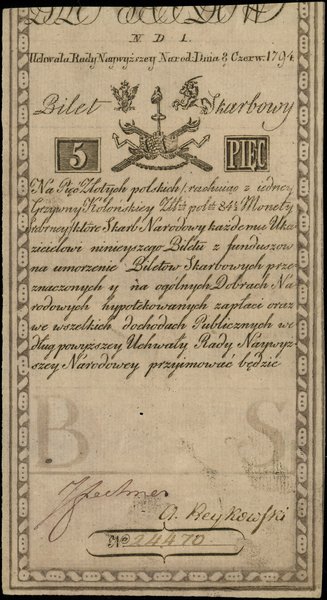 N D 1.
Uchwała Rady Naywyższey Narod: Dnia 8 Czerw: 1794
Bilet Skarbowy
5 PIĘC
Na Pięć Złotych polskich, rachuiąc z iedney
Grzywny Kolońskiey Zł: pol: 84½ Monety
srebrney, które Skarb Narodowy każdemu Uka-
zicielowi ninieyszego Biletu z funduszow
na umorzenie Biletów Skarbowych prze
znaczonych y na ogolnych Dobrach Na
rodowych hypotekowanych zapłaci oraz
we wszelkich dochodach Publicznych we
dług powyższey Uchwały Rady Naywyż-
szey Narodowey przyimować będzie
B S
A. Reykowski
No 24470